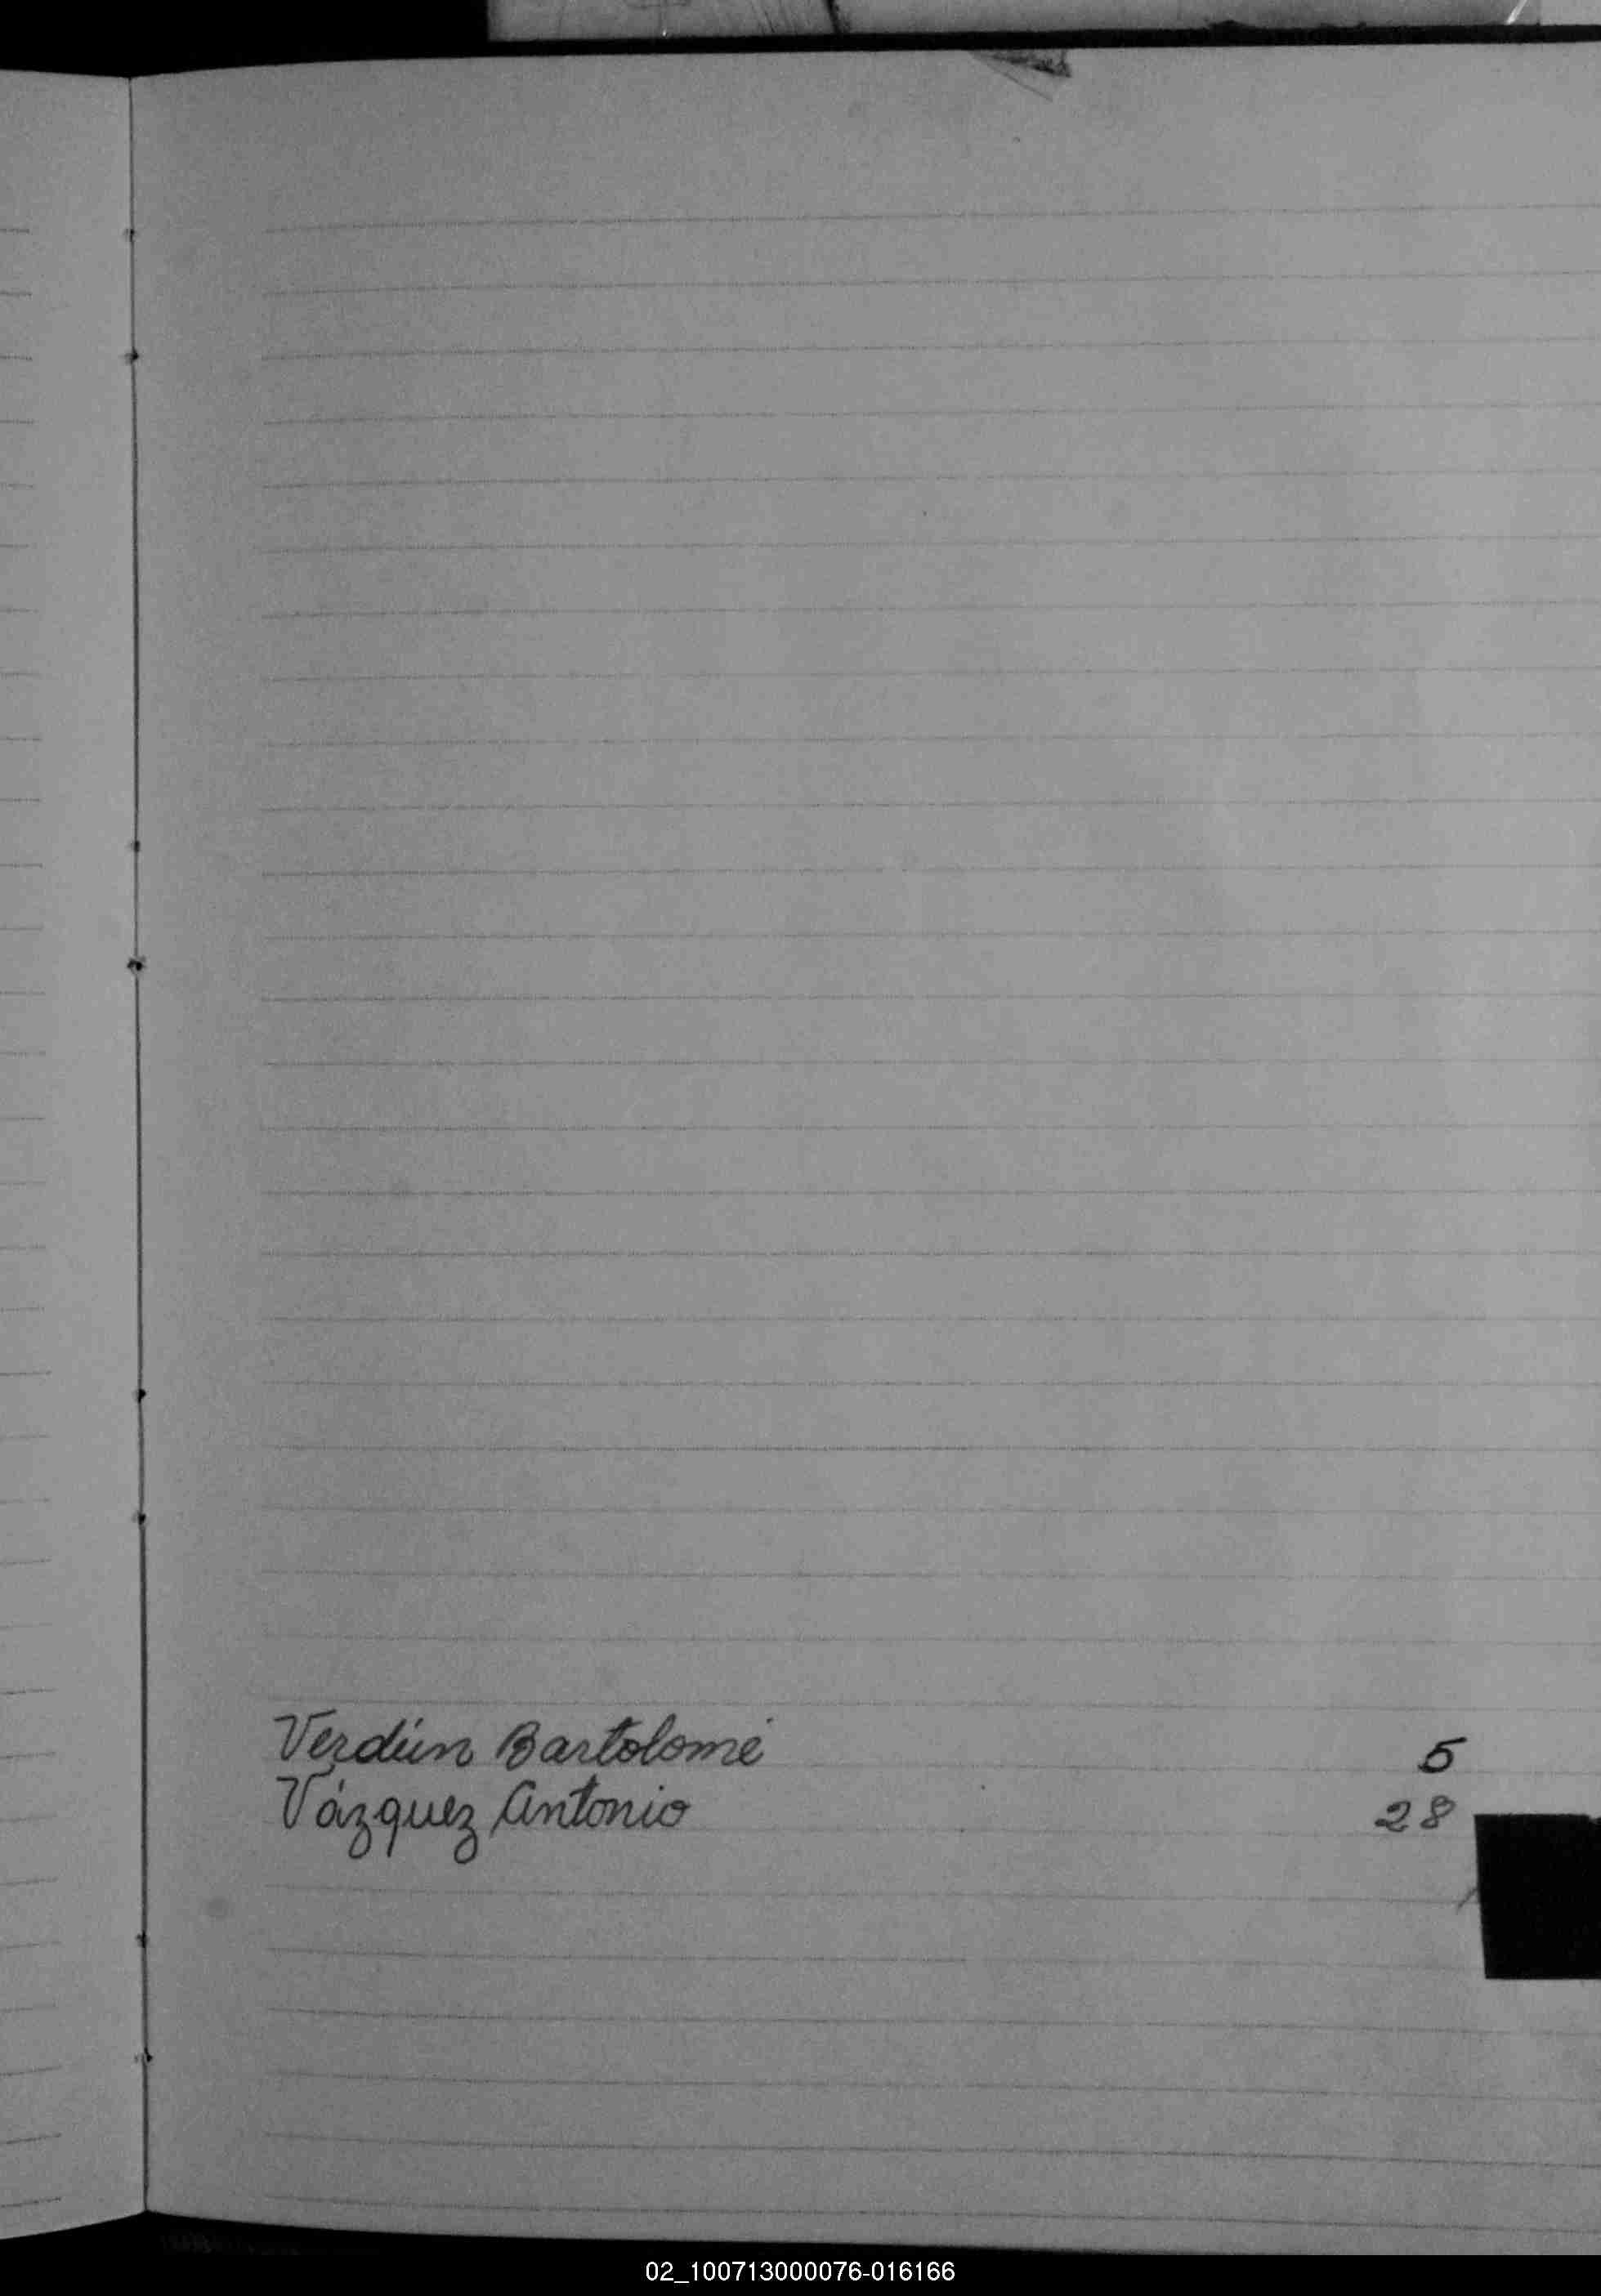 Verdún Bartolomé 5
Vázquez Antonio 28
02_100713000076-016166